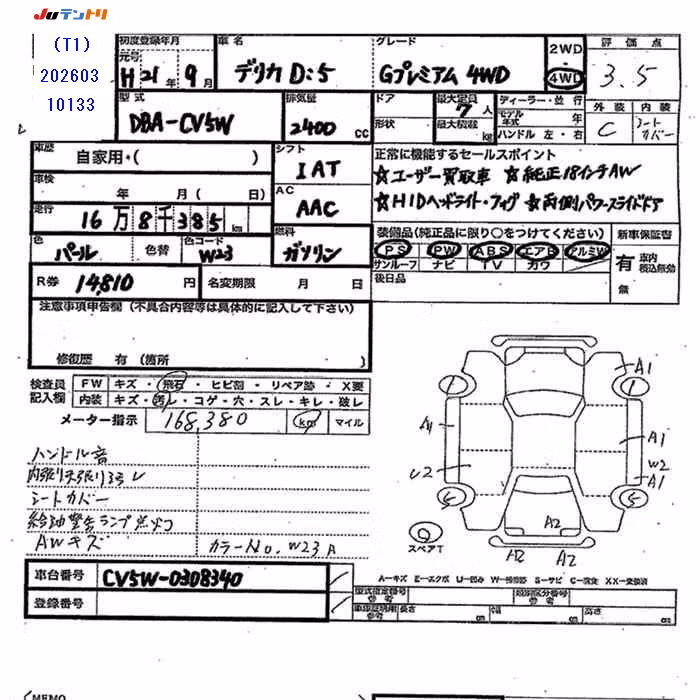 JUテントリ
(T1)
202603
10133
初度登録年月
元号
H 21年 9月
車名
デリカ D:5
グレード
Gプレミアム 4WD
2WD
4WD
評価点
3.5
外装
内装
C
シートカバー
型式
DBA-CV5W
排気量
2400 cc
ドア
形状
最大定員
7人
最大積載
kg
ディーラー・並行
モデル年式
年
ハンドル 左・右
車歴
自家用・( )
シフト
IAT
車検
年 月( 日)
AC
AAC
走行
16万8千385km
燃料
ガソリン
色
パール
色替
色コード
W23
R券
14,810円
名変期限 月 日
正常に機能するセールスポイント
☆ユーザー買取車 ☆純正18インチAW
☆HIDヘッドライト・フォグ ☆両側パワースライドドア
装備品(純正品に限り○をつけてください)
PS PW ABS エアB アルミW
サンルーフ ナビ TV カワ
後日品
新車保証書
有
車内積込無効
無
注意事項申告欄(不具合内容等は具体的に記入して下さい)
修復歴 有(箇所
検査員記入欄
FW キズ・飛石・ヒビ割・リペア跡・X要
内装 キズ・汚レ・コゲ・穴・スレ・キレ・破レ
メーター指示
168,380
km
マイル
ハンドル音
シートカバー
給油警告ランプ点灯
AWキズ
カラーNo. W23A
A1
A1
A1
U2
W2
A1
A2
A2
A2
スペアT
A－キズ E－エクボ U－凹み W－補修跡 S－サビ C－腐食 XX－交換済
車台番号
CV5W-0308340
登録番号
型式指定番号
参考
類別区分番号
参考
車庫証明用
参考
長さ
cm
幅
cm
高さ
cm
MEMO